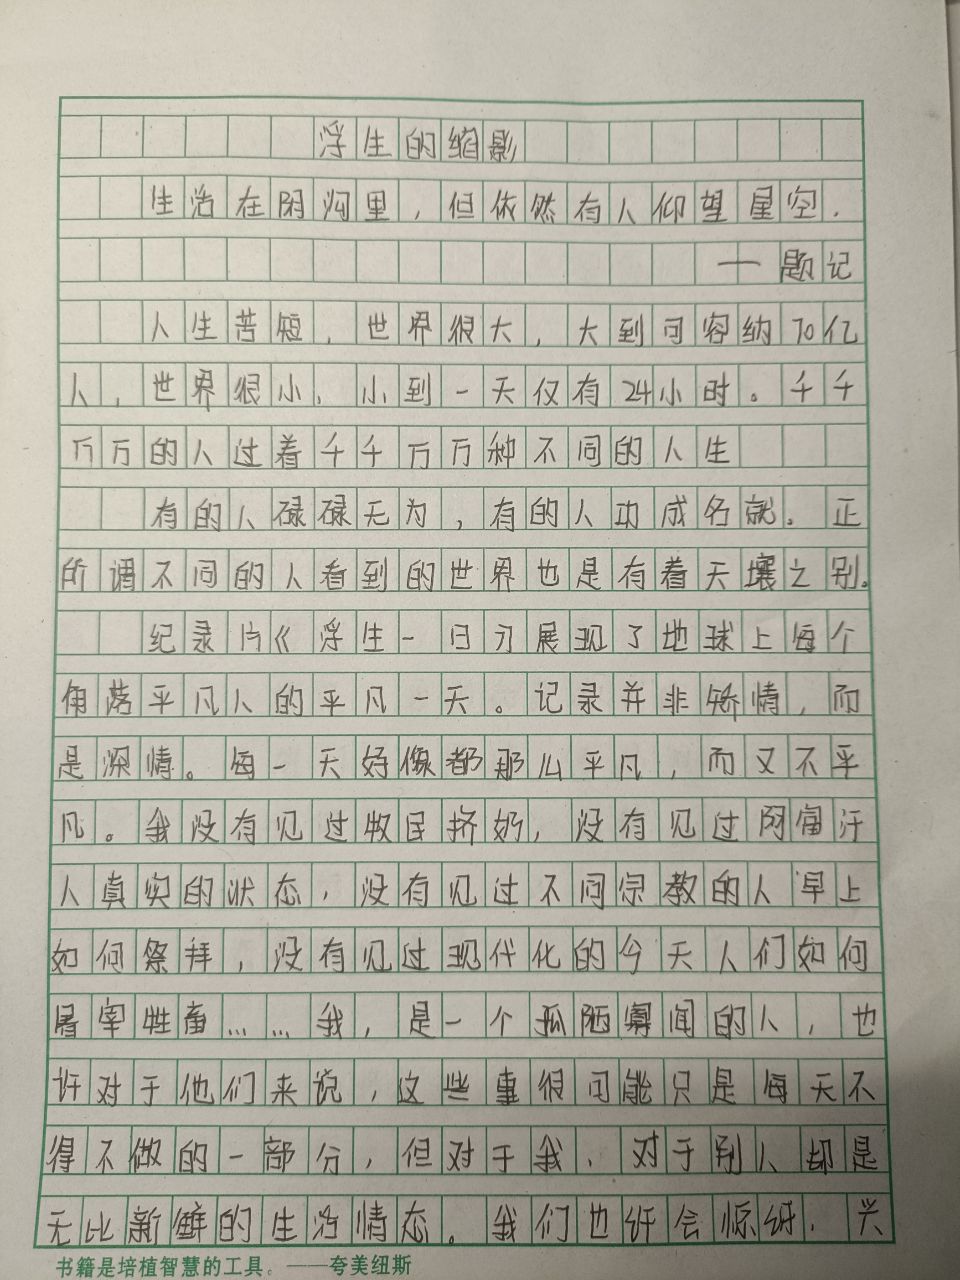 浮生的缩影
生活在阴沟里，但依然有人仰望星空.
——题记
人生苦短，世界很大，大到可容纳70亿
人，世界很小、小到一天仅有24小时。千千
万万的人过着千千万万种不同的人生
有的人碌碌无为，有的人功成名就。正
所谓不同的人看到的世界也是有着天壤之别。
纪录片《浮生一日》展现了地球上每个
角落平凡人的平凡一天。记录并非矫情，而
是深情。每一天好像都那么平凡，而又不平
凡。我没有见过牧民挤奶，没有见过阿富汗
人真实的状态，没有见过不同宗教的人早上
如何祭拜，没有见过现代化的今天人们如何
屠宰牲畜……我，是一个孤陋寡闻的人，也
许对于他们来说，这些事很可能只是每天不
得不做的一部分，但对于我、对于别人却是
无比新鲜的生活情态。我们也许会惊讶、兴
书籍是培植智慧的工具。——夸美纽斯